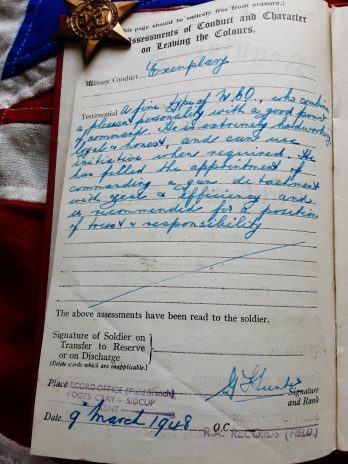 (This page should be entirely free from erasure.)
Assessments of Conduct and Character
on Leaving the Colours.
Military Conduct Exemplary
Testimonial A fine type of N.C.O., who combines
a pleasant personality with a good power
of command. He is extremely hardworking
loyal & honest, and can use
initiative when required. He
has filled the appointment of
commanding a gun detachment
with zeal & efficiency and
is recommended for a position
of trust & responsibility
The above assessments have been read to the soldier.
Signature of Soldier on
Transfer to Reserve
or on Discharge
(Delete words which are inapplicable.)
Signature
and Rank
Place RECORD OFFICE (Field Branch)
FOOTS CRAY - SIDCUP
KENT
Date 9 March 1948 O.C.
R.A. RECORDS (FIELD.)